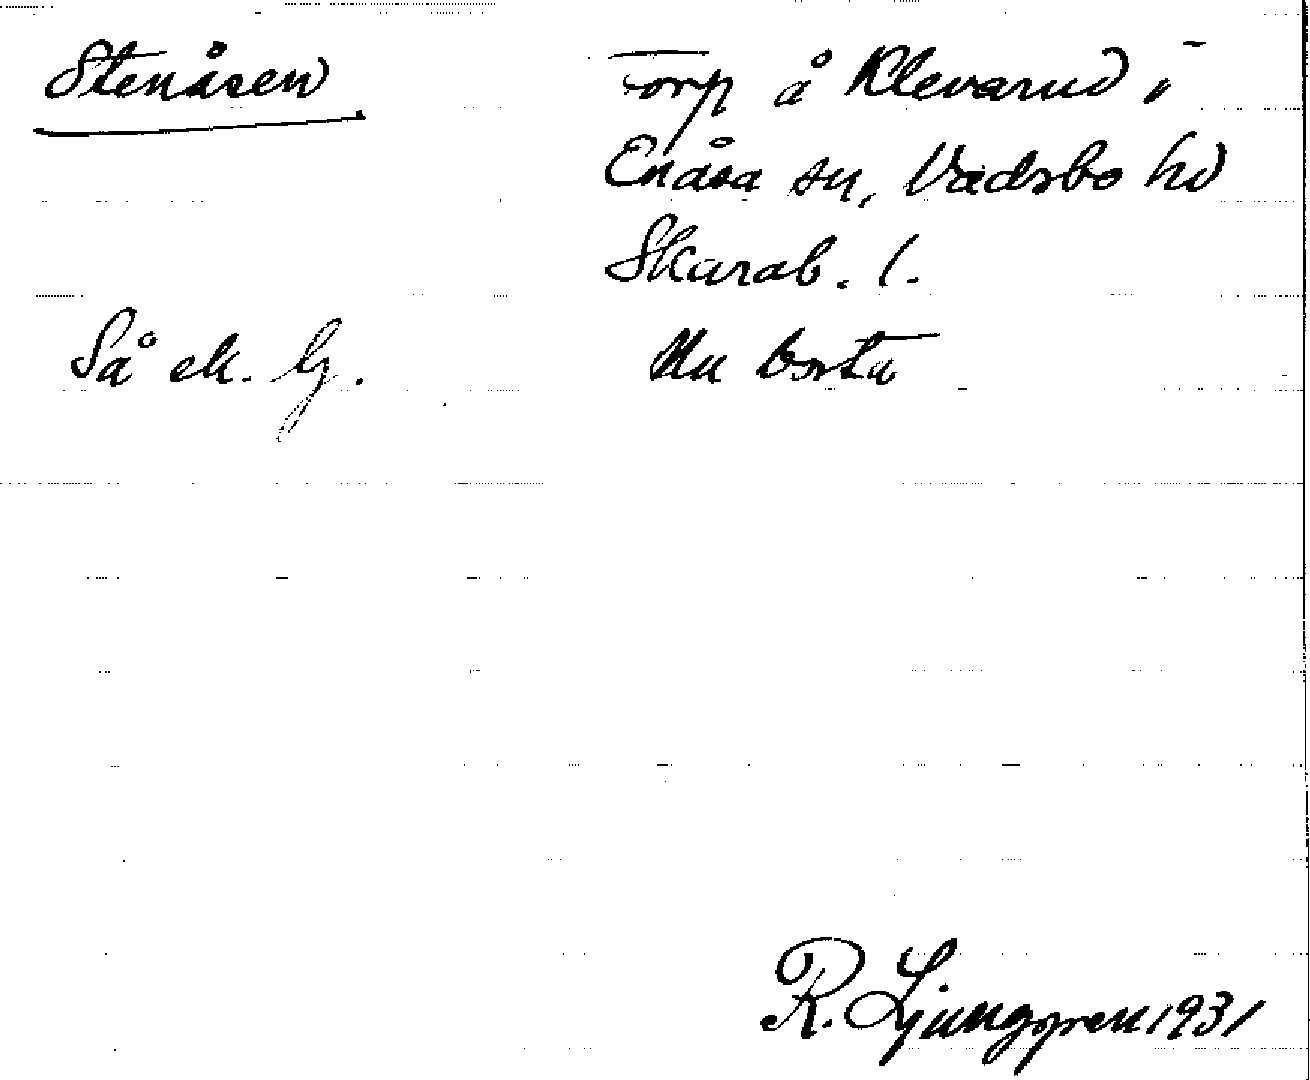 Stenåsen
Torp å Klevarud i
Enåsa sn, Vadsbo hd
Skarab. l.
Så ek. G.
Nu borta
R. Ljunggren 1931